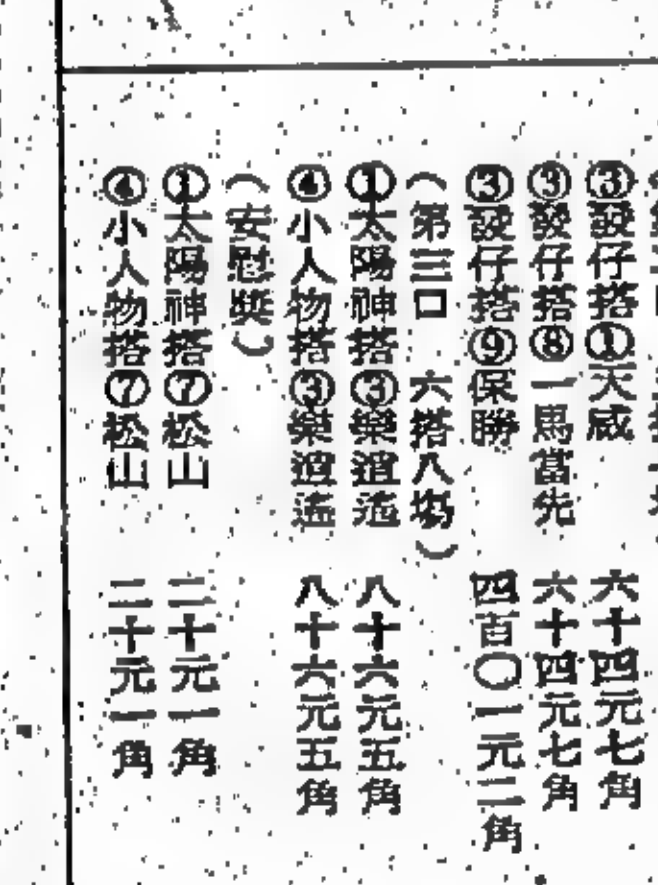 ③發仔搭①天威 六十四元七角
③發仔搭⑧一馬當先 六十四元七角
③發仔搭⑨保勝 四百〇一元二角
(第三口 六搭八場)
①太陽神搭③樂逍遙 八十六元五角
④小人物搭③樂逍遙 八十六元五角
(安慰獎)
①太陽神搭⑦松山 二十元一角
④小人物搭⑦松山 二十元一角